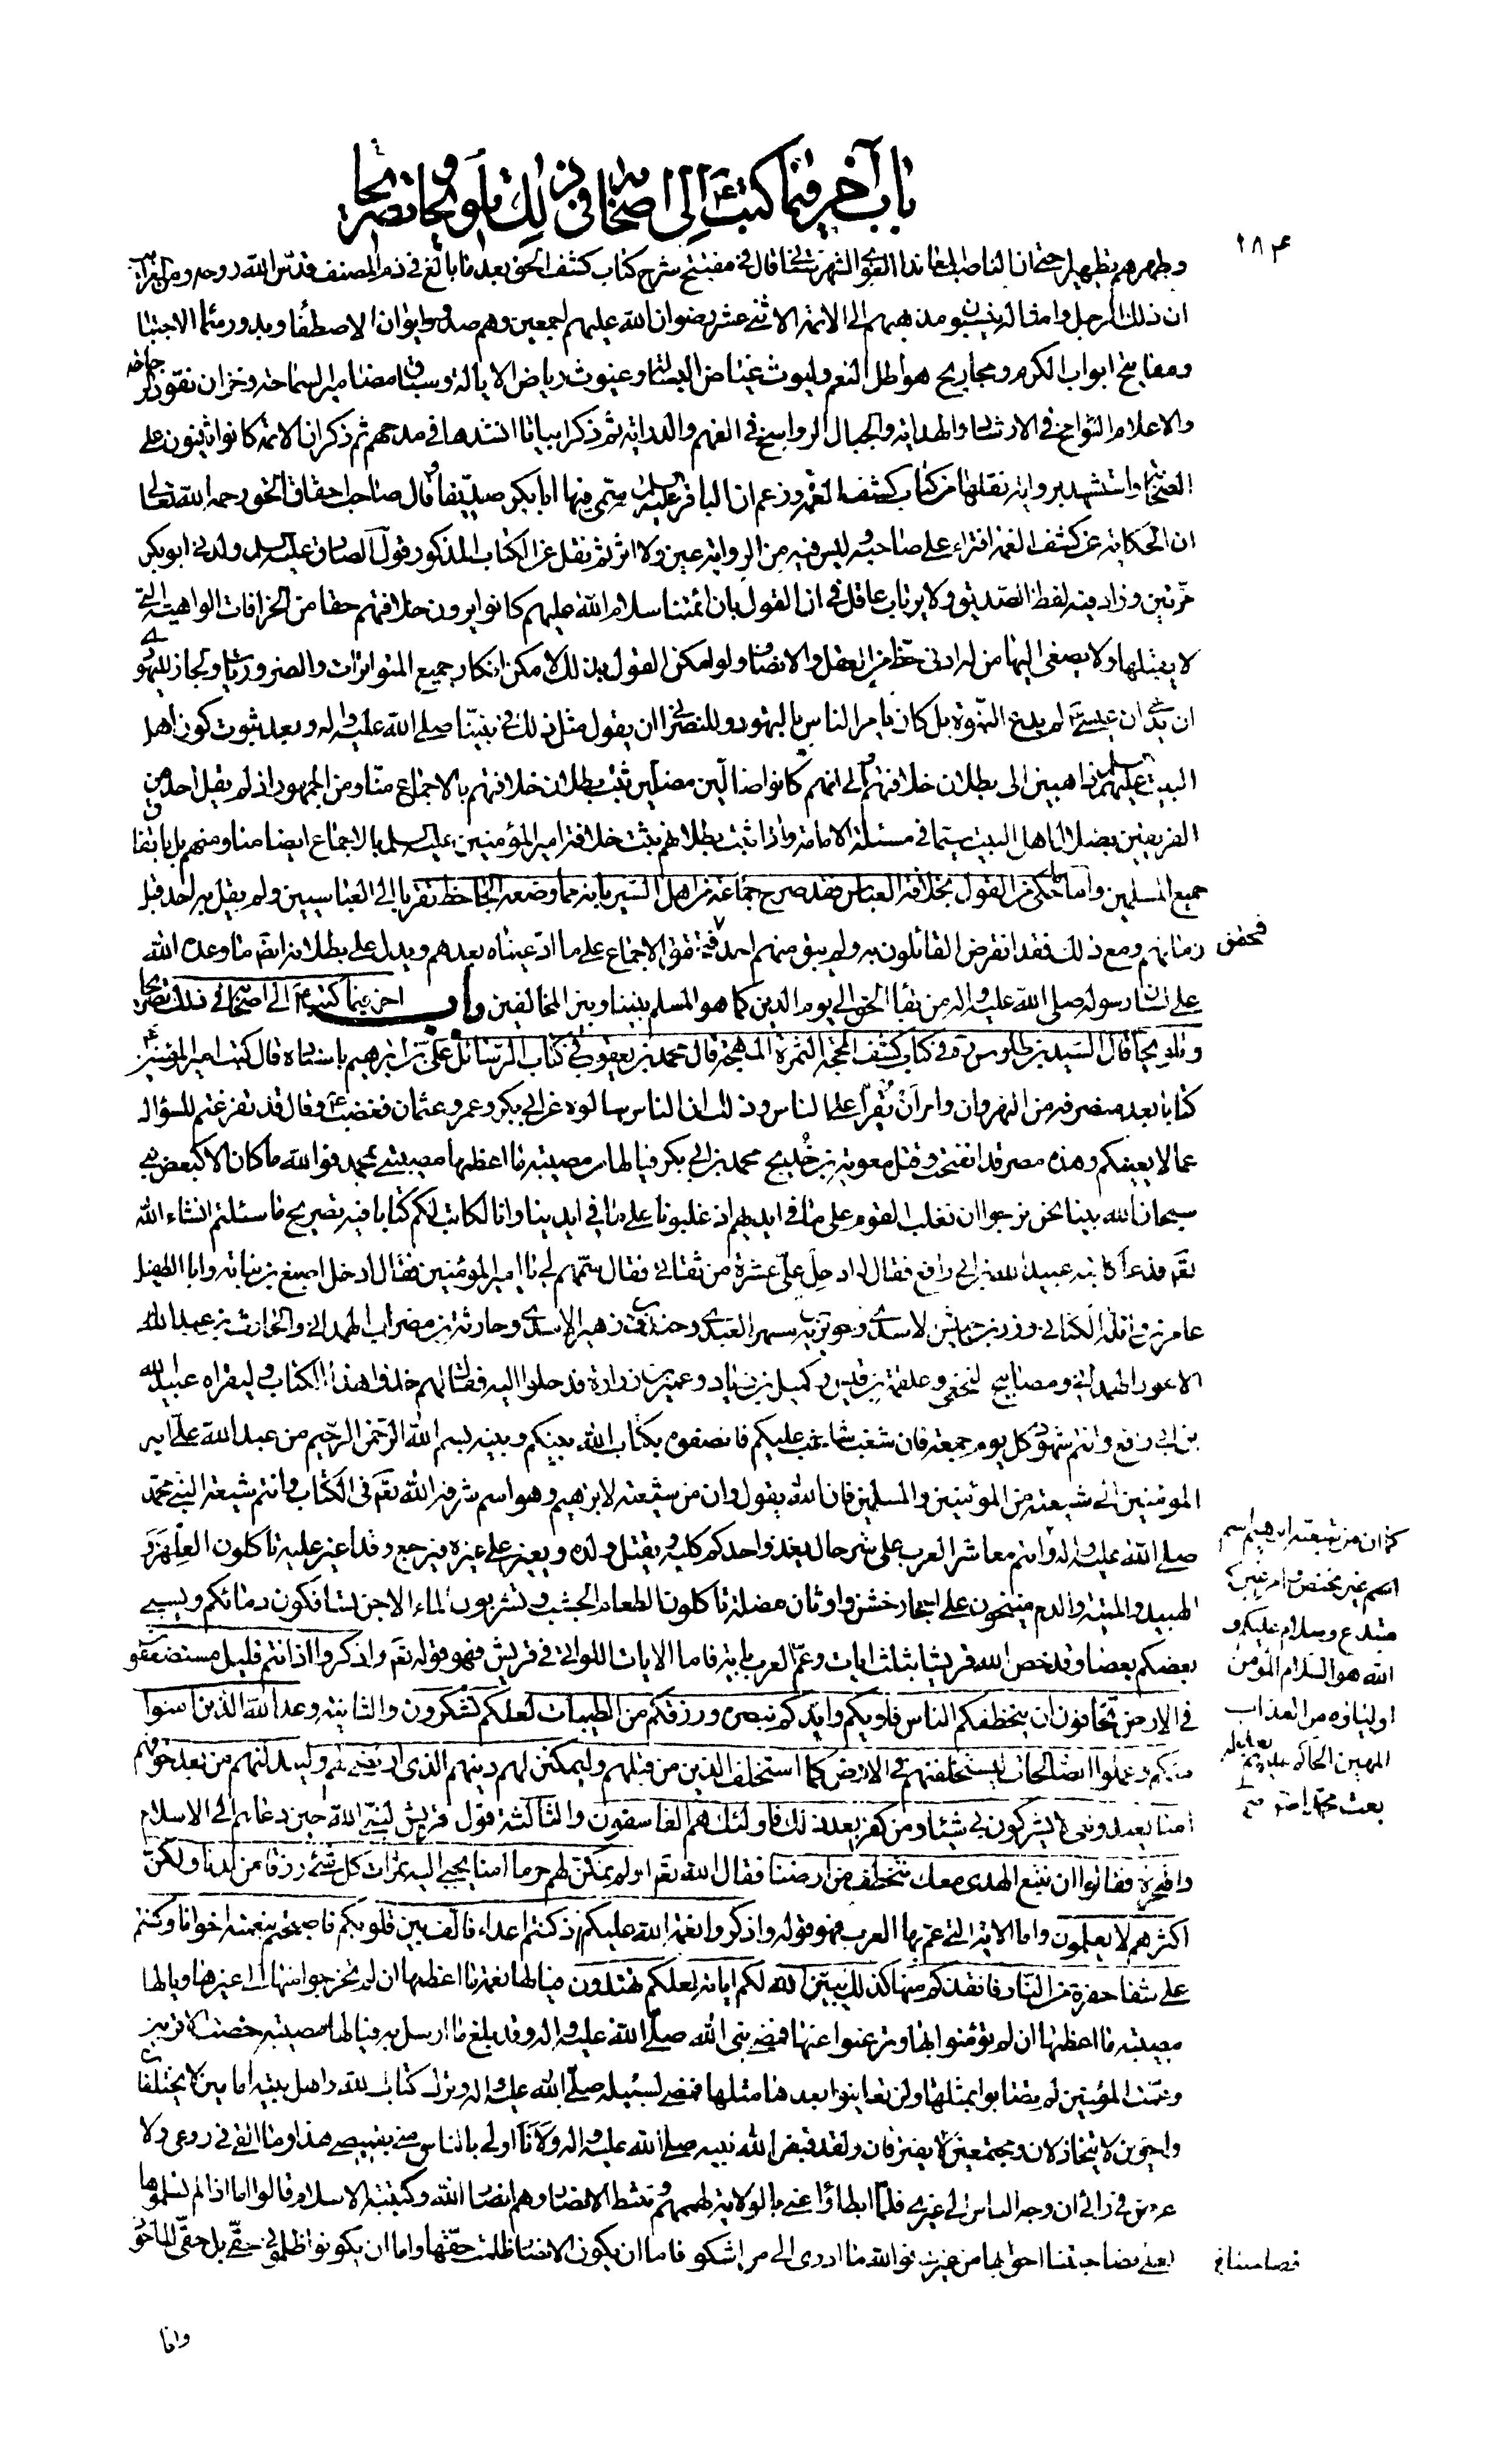 باب آخر فيما كتب ع إلى أصحابه في ذلك تلويحا وتصريحا
١٨٤
وطهرهم تطهيرا حتى ان الناصب المعاند اللغوي الشهرستاني قال في مفتتح شرح كتاب كشف الحق بعد ما بالغ في ذم المصنف قدس الله روحه ومن الغرائب
ان ذلك الرجل وامثاله ينسبون مذهبهم الى الائمة الاثني عشر رضوان الله عليهم اجمعين وهم صدور ايوان الاصطفا وبدور سماء الاجتبا
ومفاتيح ابواب الكرم ومجاديح هواطل النعم وليوث غياض البسالة وغيوث رياض الايالة وسباق مضامير السماحة وخزان نقود الرجاحة
والاعلام الشوامخ في الارشاد والهداية والجبال الرواسخ في الفهم والدراية ثم ذكر ابياتا انشدها في مدحهم ثم ذكر ان الائمة كانوا يثنون على
الصحابة واستشهد برواية نقلها من كتاب كشف الغمة وزعم ان الباقر عليه السلام سمى فيها ابا بكر صديقا وقال صاحب احقاق الحق رحمه الله تعالى
ان الحكاية عن كشف الغمة افتراء على صاحبه وليس فيه من الرواية عين ولا اثر ثم نقل عن الكتاب المذكور قول الصادق عليه السلام ولدني ابو بكر
مرتين وزاد فيه لفظ الصديق ولا يرتاب عاقل في ان القول بان ائمتنا سلام الله عليهم كانوا يرون خلافتهم حقا من الخرافات الواهية التي
لا يقبلها ولا يصغى اليها من له ادنى حظ من العقل والانصاف ولو امكن القول بذلك لامكن انكار جميع المتواترات والضروريات ولجاز لليهود
ان يدعي ان عيسى ع لم يدع النبوة بل كان يامر الناس باليهودية وللنصارى ان يقول مثل ذلك في نبينا صلى الله عليه واله وبعد ثبوت كون اهل
البيت عليهم السلام ذاهبين الى بطلان خلافتهم والى انهم كانوا ضالين مضلين ثبت بطلان خلافتهم بالاجماع منا ومن الجمهور اذ لم يقل احد من
الفريقين بضلال اهل البيت سيما في مسئلة الامامة واذا ثبت بطلانهم ثبت خلافة امير المؤمنين عليه السلم بالاجماع ايضا منا ومنهم بل باتفاق
جميع المسلمين واما ما حكي من القول بخلافة العباس فقد صرح جماعة من اهل السير بانه مما وضعه الجاحظ تقربا الى العباسيين ولم يقل به احد قبل
زمانهم ومع ذلك فقد انقرض القائلون به ولم يبق منهم احد فتحقق الاجماع على ما ادعيناه بعدهم ويدل على بطلانه ايضا ما وعده الله
فتحقق
على لسان رسوله صلى الله عليه واله من بقاء الحق الى يوم الدين كما هو المسلم بيننا وبين المخالفين باب اخر فيما كتب ع الى اصحابه في ذلك تصريحا
وتلويحا قال السيد بن طاوس ره في كتاب كشف المحجة لثمرة المهجة قال محمد بن يعقوب في كتاب الرسائل علي بن ابراهيم باسناده قال كتب امير المؤمنين ع
كتابا بعد منصرفه من النهروان وامر ان يقرأ على الناس وذلك ان الناس سالوه عن ابي بكر وعمر وعثمان فغضب ع وقال قد تفرغتم للسؤال
عما لا يعنيكم وهذه مصر قد انفتحت وقتل معوية بن خديج محمد بن ابي بكر فيا لها من مصيبة ما اعظمها مصيبتي بمحمد فوالله ما كان الا كبعض بني
سبحان الله بينا نحن نرجو ان نغلب القوم على ما في ايديهم اذ غلبونا على ما في ايدينا وانا كاتب لكم كتابا فيه تصريح ما سئلتم انشاء الله
تعم فدعا كاتبه عبيد الله بن ابي رافع فقال له ادخل علي عشرة من ثقاتي فقال سمهم لي يا امير المؤمنين فقال ادخل اصبغ بن نباتة وابا الطفيل
عامر بن واثلة الكناني وزر بن حبيش الاسدي وجويرية بن مسهر العبدي وخندف بن زهير الاسدي وحارثة بن مضراب الهمداني والحارث بن عبد الله
الاعور الهمداني ومصابيح النخعي وعلقمة بن قيس وكميل بن زياد وعمير بن زرارة فدخلوا اليه فقال لهم خذوا هذا الكتاب وليقراه عبيد الله
بن ابي رافع وانتم شهود كل يوم جمعة فان شغب شاغب عليكم فانصفوه بكتاب الله بينكم وبينه بسم الله الرحمن الرحيم من عبد الله علي امير
المؤمنين الى شيعته من المؤمنين والمسلمين فان الله يقول وان من شيعته لابرهيم وهو اسم شرفه الله تعم في الكتاب وانتم شيعة النبي محمد
صلى الله عليه واله وانتم معاشر العرب على شر حال يغذو احدكم كلبه ويقتل ولده ويغير على غيره فيرجع وقد اغير عليه تاكلون العلهز و
الهبيد والميتة والدم منيخون على احجار خشن واوثان مضلة تاكلون الطعام الجشب وتشربون الماء الاجن تسافكون دمائكم ويسبي
بعضكم بعضا وقد خص الله قريشا بثلث ايات وعم العرب باية فاما الايات اللواتي في قريش فهو قوله تعم واذكروا اذ انتم قليل مستضعفون
في الارض تخافون ان يتخطفكم الناس فاويكم وايدكم بنصره ورزقكم من الطيبات لعلكم تشكرون والثانية وعد الله الذين امنوا
منكم وعملوا الصالحات ليستخلفنهم في الارض كما استخلف الذين من قبلهم وليمكنن لهم دينهم الذي ارتضى لهم وليبدلنهم من بعد خوفهم
امنا يعبدونني لا يشركون بي شيئا ومن كفر بعد ذلك فاولئك هم الفاسقون والثالثة قول قريش لنبي الله حين دعاهم الى الاسلام
والهجرة فقالوا ان نتبع الهدى معك نتخطف من ارضنا فقال الله تعم او لم نمكن لهم حرما امنا يجبى اليه ثمرات كل شيء رزقا من لدنا ولكن
اكثرهم لا يعلمون واما الاية التي عم بها العرب فهو قوله واذكروا نعمة الله عليكم اذ كنتم اعداء فالف بين قلوبكم فاصبحتم بنعمته اخوانا وكنتم
على شفا حفرة من النار فانقذكم منها كذلك يبين الله لكم اياته لعلكم تهتدون فيا لها نعمة ما اعظمها ان لم تخرجوا منها الى غيرها ويا لها
مصيبة ما اعظمها ان لم تؤمنوا بها وترغبوا عنها فمضى نبي الله صلى الله عليه واله وقد بلغ ما ارسل به فيا لها مصيبة خصت الاقربين
وعمت المؤمنين لم تصابوا بمثلها ولن تعاينوا بعدها مثلها فمضى لسبيله صلى الله عليه واله وترك كتاب الله واهل بيته امامين لا يختلفان
واخوين لا يتخاذلان ومجتمعين لا يفترقان ولقد قبض الله نبيه صلى الله عليه واله ولانا اولى بالناس مني بقميصي هذا وما القي في روعي ولا
عرض في رائي ان وجه الناس الى غيري فلما ابطاؤا عني بالولاية لهممهم وتثبط الانصار وهم انصار الله وكتيبة الاسلام قالوا اما اذا لم تسلموها
لعلي فصاحبنا احق بها من غيره فوالله ما ادري الى من اشكو فاما ان يكون الانصار ظلمت حقها واما ان يكونوا ظلموني حقي بل حقي الماخوذ
كذا ان من شيعته ابرهيم اسم
اسم غير مختص وامر غير
مبتدع وسلام عليكم و
الله هو السلام المؤمن
اولياؤه من العذاب
المهين الحاكم عليهم بعدله
بعث محمدا
وانا